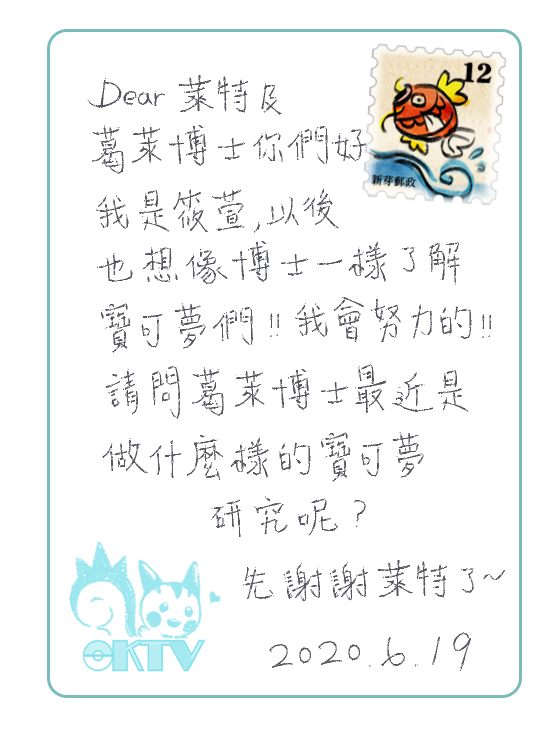 12
新芽郵政
Dear 萊特及
葛萊博士你們好
我是筱萱,以後
也想像博士一樣了解
寶可夢們!!我會努力的!!
請問葛萊博士最近是
做什麼樣的寶可夢
研究呢?
先謝謝萊特了~
2020.6.19
OKTV